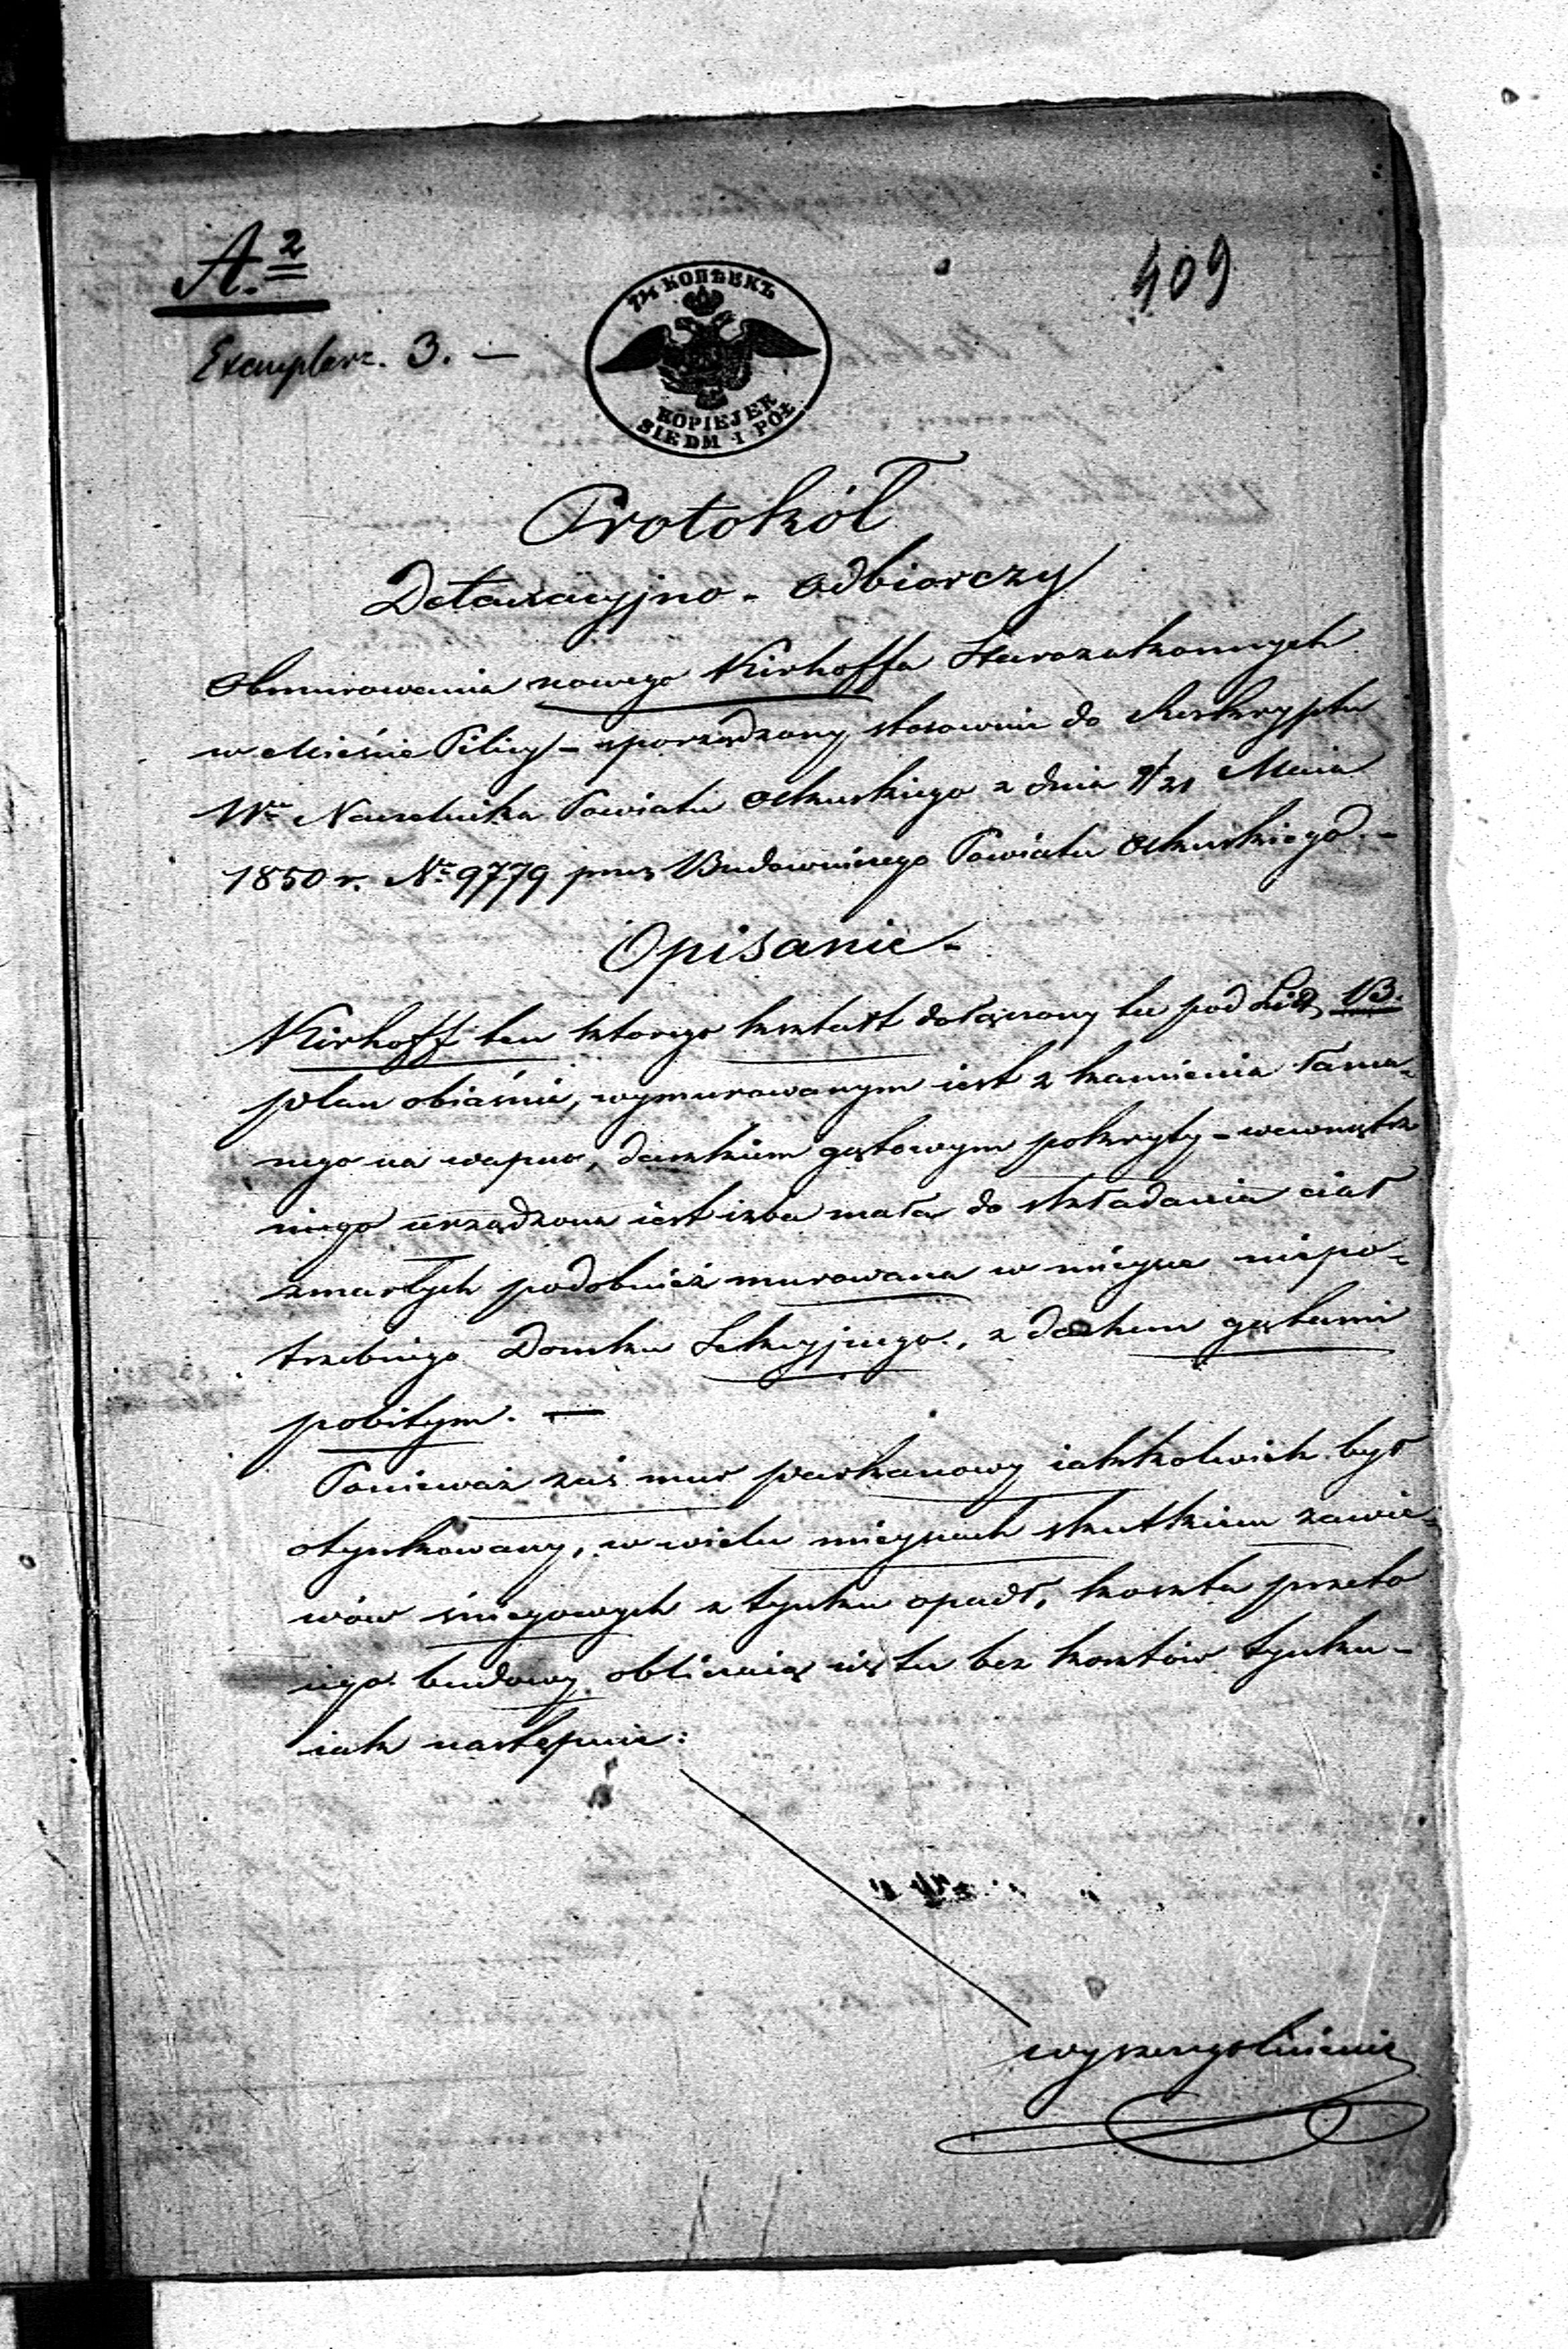 A.2
409
7½ КОПѢЕКЪ
KOPIEJEK
SIEDM I PÓŁ
Exemplarz. 3. —
Protokół
Detaxacyjno - Odbiorczy
Obmurowania nowego Kirhoffa Starozakonnych
w Mieście Pilicy - sporządzony stosownie do Reskryptu
Wo Naczelnika Powiatu Olkuskiego z dnia 9/21 Maia
1850 r. No 9779 przez Budowniczego Powiatu Olkuskiego. -
Opisanie -
Kirhoff ten którego kształt dołączony tu pod Lit. B.
plan obiaśnia, wymurowanym iest z kamienia łama-
nego na wapno, daszkiem gątowym pokryty - wewnątrz
niego urządzona iest izba mała do składania ciał
zmarłych podobnież murowana w mieysce niepo-
trzebnego Domku Sekcyjnego, z dachem gątami
pobitym. —
Ponieważ zaś mur parkanowy iakkolwiek był
otynkowany, w wielu mieyscach skutkiem zawie-
wów śniegowych z tynku opadł, koszta przeto
iego budowy obliczaią się tu bez kosztów tynku -
iak następuie:
wyszczególnienie